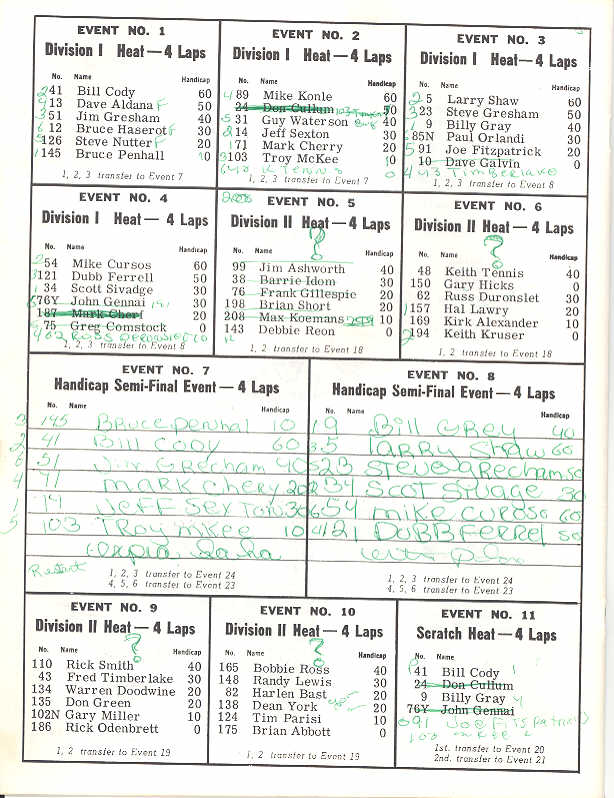 EVENT NO. 1
Division I Heat — 4 Laps
No. Name Handicap
2 41 Bill Cody 60
4 13 Dave Aldana F 50
3 51 Jim Gresham 40
6 12 Bruce Haserot F 30
5 126 Steve Nutter F 20
1 145 Bruce Penhall 10
1, 2, 3 transfer to Event 7
EVENT NO. 2
Division I Heat — 4 Laps
No. Name Handicap
4 89 Mike Konle 60
24 Don Cullum 50
5 31 Guy Waterson 40
2 14 Jeff Sexton 30
1 71 Mark Cherry 20
3 103 Troy McKee 10
1, 2, 3 transfer to Event 7 0
EVENT NO. 3
Division I Heat — 4 Laps
No. Name Handicap
2 5 Larry Shaw 60
3 23 Steve Gresham 50
1 9 Billy Gray 40
85N Paul Orlandi 30
5 91 Joe Fitzpatrick 20
10 Dave Galvin 0
4 43 Timberlake
1, 2, 3 transfer to Event 8
EVENT NO. 4
Division I Heat — 4 Laps
No. Name Handicap
2 54 Mike Cursos 60
3 121 Dubb Ferrell 50
1 34 Scott Sivadge 30
76Y John Gennai 30
187 Mark Cherf 20
75 Greg Comstock 0
1, 2, 3 transfer to Event 8
EVENT NO. 5
Division II Heat — 4 Laps
?
99 Jim Ashworth 40
38 Barrie Idom 30
76 Frank Gillespie 20
198 Brian Short 20
208 Max Koemans 10
143 Debbie Reon 0
1, 2 transfer to Event 18
EVENT NO. 6
Division II Heat — 4 Laps
?
48 Keith Tennis 40
150 Gary Hicks 0
62 Russ Duronslet 30
1 157 Hal Lawry 20
169 Kirk Alexander 10
2 194 Keith Kruser 0
1, 2 transfer to Event 18
EVENT NO. 7
Handicap Semi-Final Event — 4 Laps
No. Name Handicap
3 145 Bruce penhal 10
2 41 Bill Cody 60
6 51 Jim Grecham 40
4 71 Mark Chery 20
1 14 Jeff Sexton 30
5 103 Troy Mkee 10
1, 2, 3 transfer to Event 24
4, 5, 6 transfer to Event 23
EVENT NO. 8
Handicap Semi-Final Event — 4 Laps
No. Name Handicap
1 9 Bill Grey 40
3 5 Larry Shaw 60
5 23 Steve Grecham 50
2 34 Scot Sivage 30
6 54 Mike Curoso 60
4 121 DuBB Ferrel 50
1, 2, 3 transfer to Event 24
4, 5, 6 transfer to Event 23
EVENT NO. 9
Division II Heat — 4 Laps
?
110 Rick Smith 40
43 Fred Timberlake 30
134 Warren Doodwine 20
135 Don Green 20
102N Gary Miller 10
186 Rick Odenbrett 0
1, 2 transfer to Event 19
EVENT NO. 10
Division II Heat — 4 Laps
?
165 Bobbie Ross 40
148 Randy Lewis 30
82 Harlen Bast 20
138 Dean York 20
124 Tim Parisi 10
175 Brian Abbott 0
1, 2 transfer to Event 19
EVENT NO. 11
Scratch Heat — 4 Laps
No. Name
41 Bill Cody 1
24 Don Cullum
9 Billy Gray 4
76Y John Gennai
91 Joe Fitspatric
1st. transfer to Event 20
2nd. transfer to Event 21